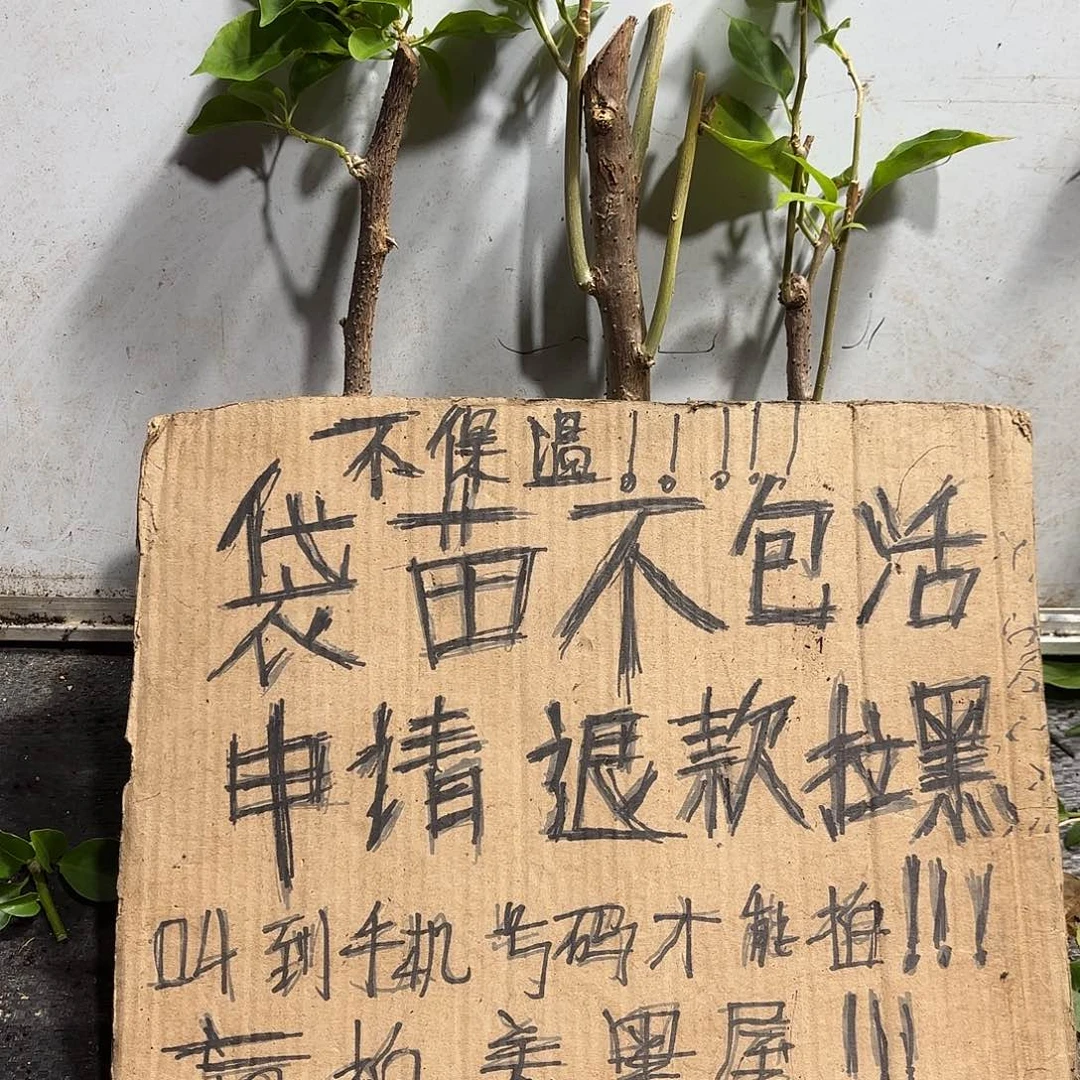 不保温!!!!!
袋苗不包活
申请退款拉黑
叫到手机号码才能拍!!!
拍关黑屋!!!